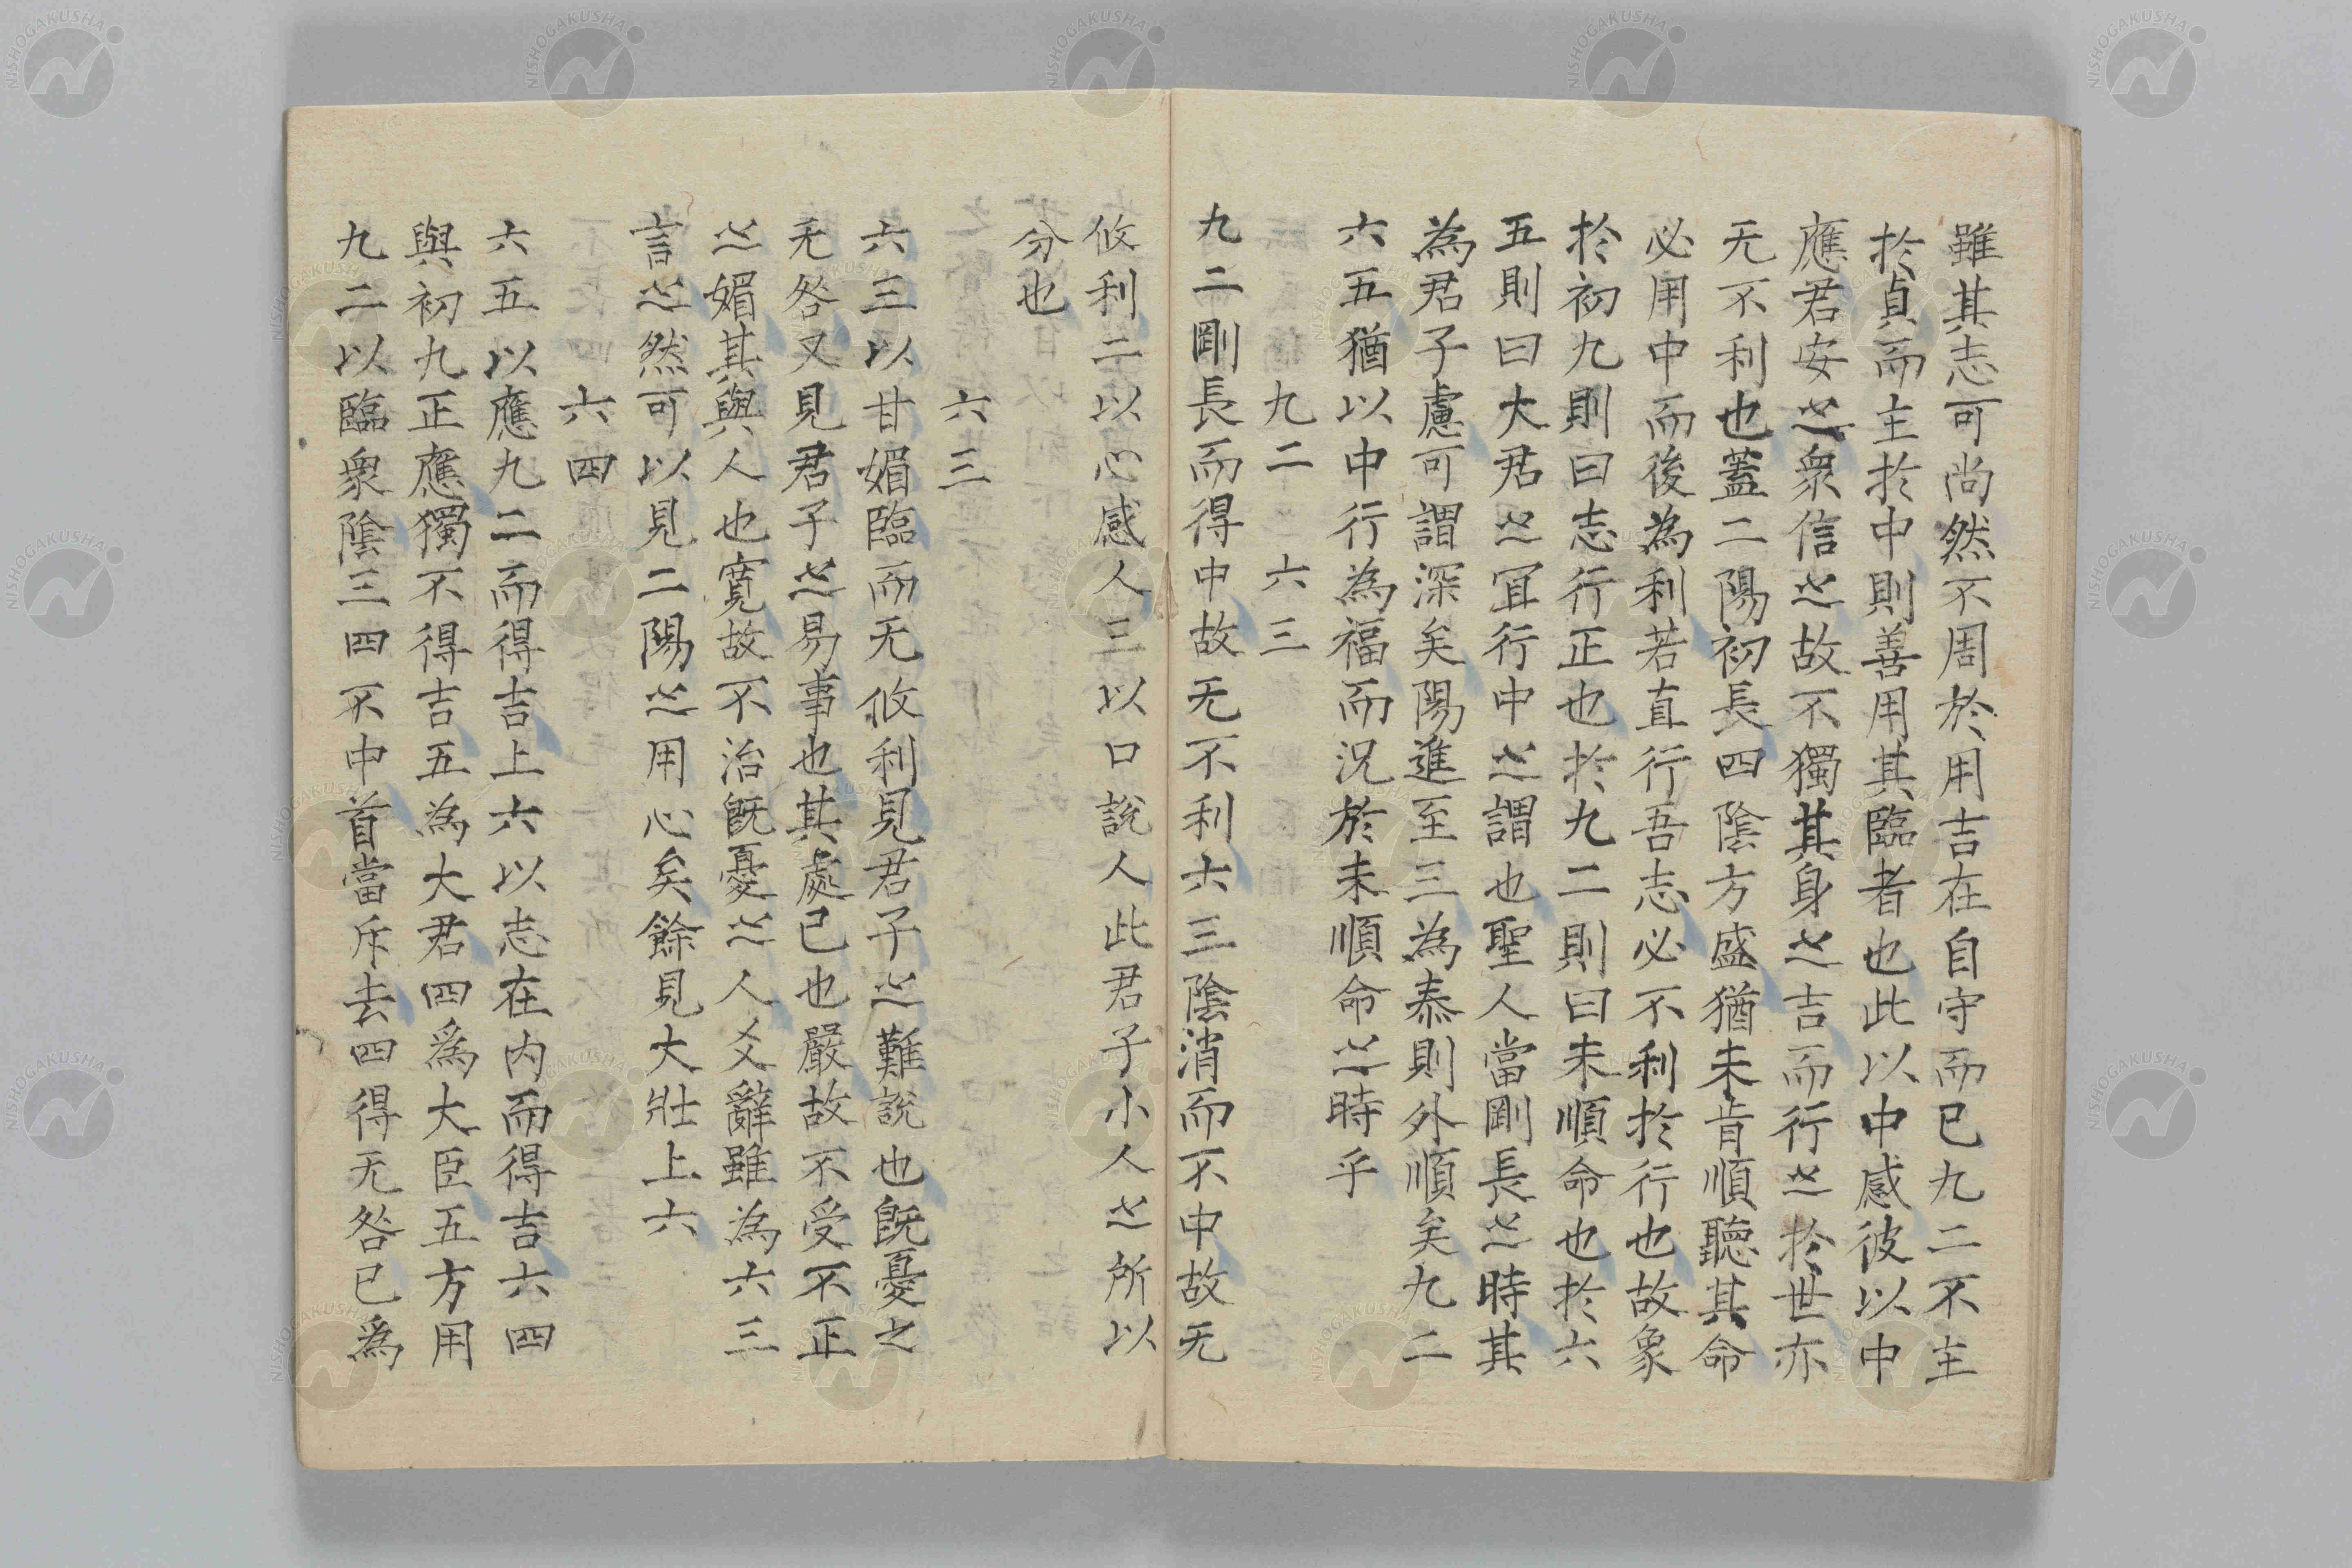 雖其志可尚然不周於用吉在自守而已九二不主
於貞而主於中則善用其臨者也此以中感彼以中
應君安之衆信之故不獨其身之吉而行之於世亦
无不利也蓋二陽初長四陰方盛猶未肯順聽其命
必用中而後為利若直行吾志必不利於行也故象
於初九則曰志行正也於九二則曰未順命也於六
五則曰大君之宜行中之謂也聖人當剛長之時其
為君子慮可謂深矣陽進至三為泰則外順矣九二
六五猶以中行為福而況於未順命之時乎
九二 六三
九二剛長而得中故无不利六三陰消而不中故无
攸利二以心感人三以口說人此君子小人之所以
分也
六三
六三以甘媚臨而无攸利見君子之難說也既憂之
无咎又見君子之易事也其處已也嚴故不受不正
之媚其與人也寛故不治既憂之人爻辭雖為六三
言之然可以見二陽之用心矣餘見大壯上六
六四
六五以應九二而得吉上六以志在内而得吉六四
與初九正應獨不得吉五為大君四爲大臣五方用
九二以臨衆陰三四不中首當斥去四得无咎已爲
NISHOGAKUSHA